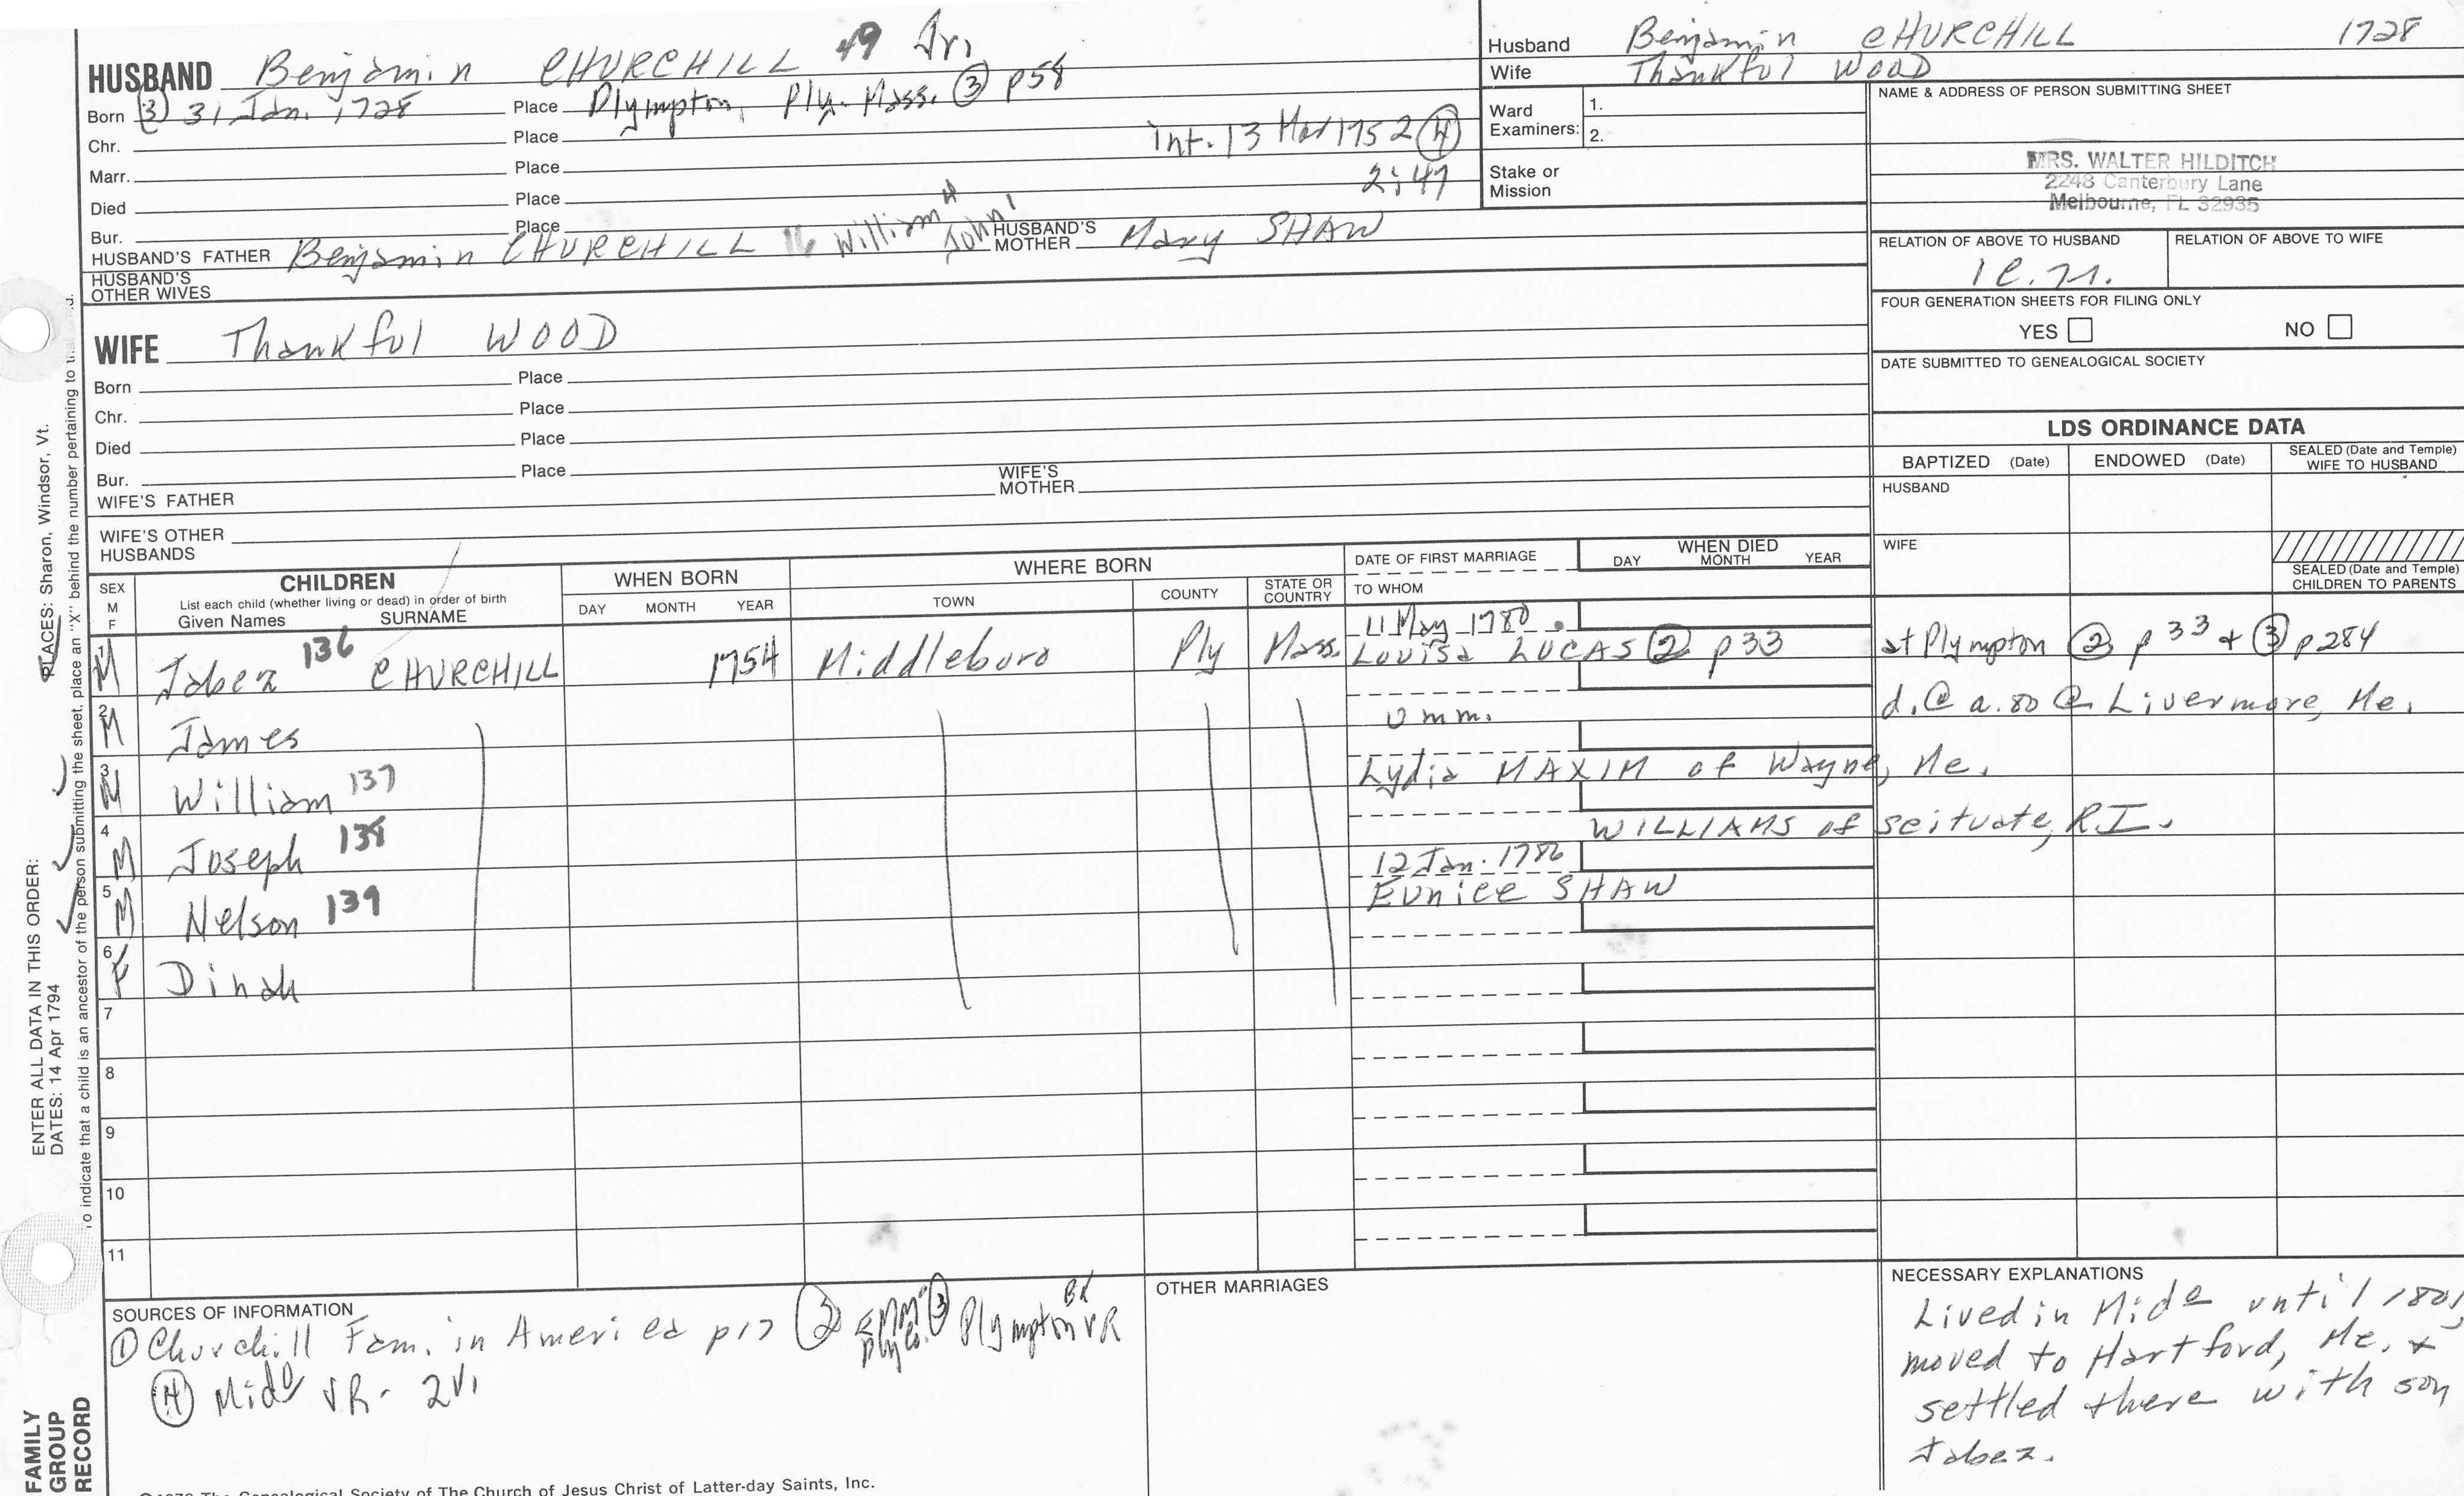 HUSBAND Benjamin CHURCHILL 49 Jr.
Born (3) 31 Jan. 1728 Place Plympton, Ply. Mass. (3) p58
Chr. Place Int. 13 Mar 1752 (4)
Marr. Place 2:47
Died Place
Bur. Place
HUSBAND'S FATHER Benjamin CHURCHILL 16 William John HUSBAND'S MOTHER Mary SHAW
HUSBAND'S OTHER WIVES
WIFE Thankful WOOD
Born Place
Chr. Place
Died Place
Bur. Place
WIFE'S FATHER WIFE'S MOTHER
WIFE'S OTHER HUSBANDS
Husband Benjamin CHURCHILL 1728
Wife Thankful WOOD
Ward Examiners: 1.
2.
Stake or Mission
NAME & ADDRESS OF PERSON SUBMITTING SHEET
MRS. WALTER HILDITCH
2248 Canterbury Lane
Melbourne, FL 32935
RELATION OF ABOVE TO HUSBAND RELATION OF ABOVE TO WIFE
FOUR GENERATION SHEETS FOR FILING ONLY
YES NO
DATE SUBMITTED TO GENEALOGICAL SOCIETY
LDS ORDINANCE DATA
BAPTIZED (Date) ENDOWED (Date) SEALED (Date and Temple) WIFE TO HUSBAND
HUSBAND
WIFE
SEALED (Date and Temple) CHILDREN TO PARENTS
SEX M F
CHILDREN
List each child (whether living or dead) in order of birth
Given Names SURNAME
WHEN BORN
DAY MONTH YEAR
WHERE BORN
TOWN COUNTY STATE OR COUNTRY
DATE OF FIRST MARRIAGE
TO WHOM
WHEN DIED
DAY MONTH YEAR
1 M Jabez 136 CHURCHILL 1754 Middleboro Ply Mass. 11 May 1780
Louisa LUCAS (2) p33 at Plympton (2) p33 + (3) p284
2 M James unm. d. @ a. 80 @ Livermore, Me.
3 M William 137 Lydia MAXIM of Wayne, Me.
4 M Joseph 138 WILLIAMS of Scituate, RI.
5 M Nelson 139 12 Jan. 1786
Eunice SHAW
6 F Dinah
7
8
9
10
11
SOURCES OF INFORMATION
(1) Churchill Fam. in America p17 (2) EMM Ply Co. (3) Plympton VR Bk
(4) Mid VR - 2
OTHER MARRIAGES
NECESSARY EXPLANATIONS
Lived in Mid until 1801,
moved to Hartford, Me. +
settled there with son
Jabez.
ENTER ALL DATA IN THIS ORDER:
DATES: 14 Apr 1794
PLACES: Sharon, Windsor, Vt.
To indicate that a child is an ancestor of the person submitting the sheet, place an "X" behind the number pertaining to
FAMILY
GROUP
RECORD
The Genealogical Society of The Church of Jesus Christ of Latter-day Saints, Inc.